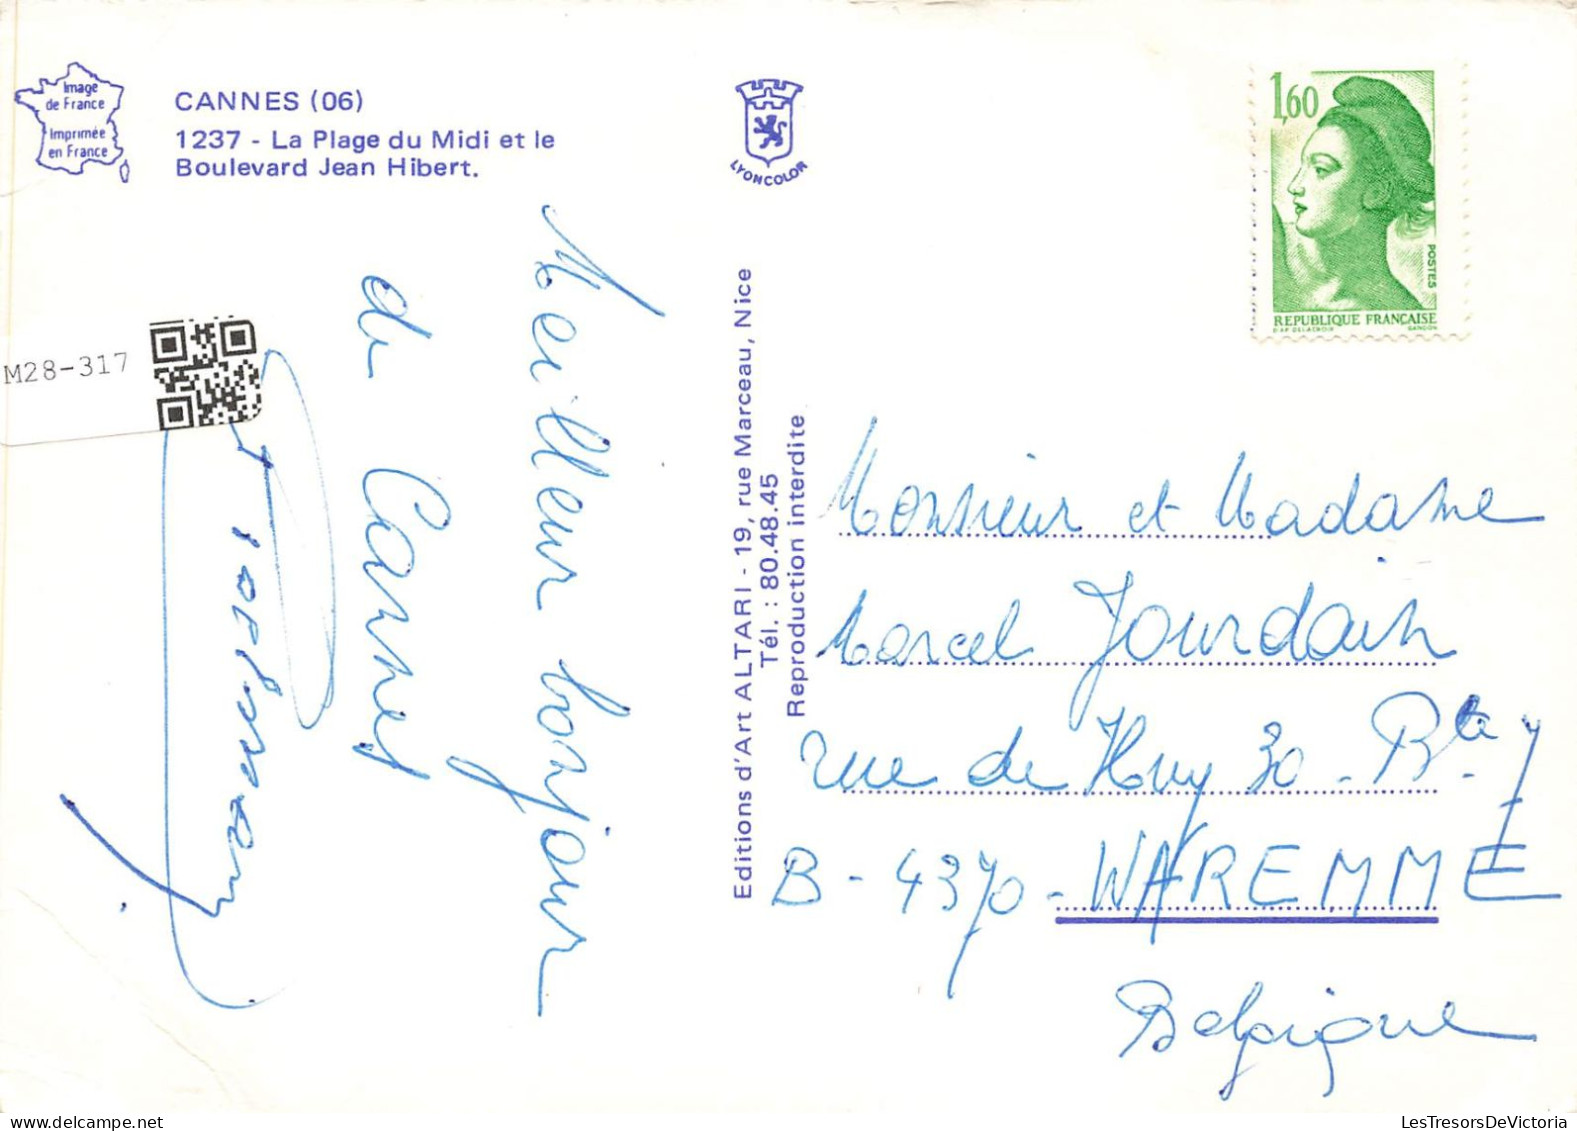 Image
de France
Imprimée
en France
CANNES (06)
1237 - La Plage du Midi et le
Boulevard Jean Hibert.
LYONCOLOR
1,60
POSTES
REPUBLIQUE FRANÇAISE
D'AP DELACROIX GANDON
M28-317
Meilleur bonjour
de Cannes
Editions d'Art ALTARI - 19, rue Marceau, Nice
Tél. : 80.48.45
Reproduction interdite
Monsieur et Madame
Marcel Jourdain
rue de Huy 30 - Bte 7
B - 4370 - WAREMME
Belgique
LesTresorsDeVictoria.com